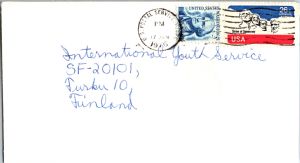 POSTAL SERVICE
PM
UNITED STATES
26c
USA
International Youth Service
SF-20101,
Turku 10,
Finland